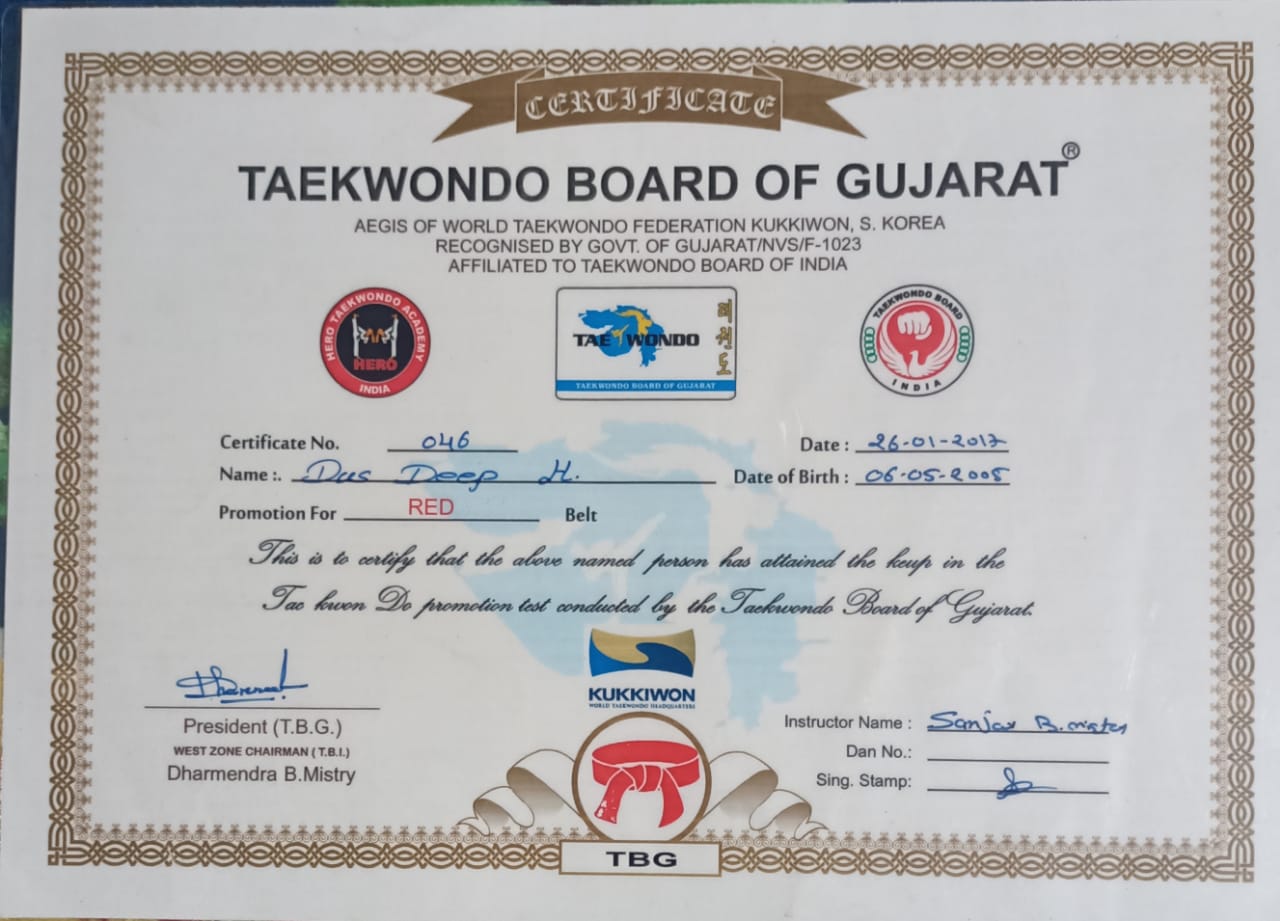 CERTIFICATE
TAEKWONDO BOARD OF GUJARAT®
AEGIS OF WORLD TAEKWONDO FEDERATION KUKKIWON, S. KOREA
RECOGNISED BY GOVT. OF GUJARAT/NVS/F-1023
AFFILIATED TO TAEKWONDO BOARD OF INDIA
HERO TAEKWONDO ACADEMY
HERO
INDIA
TAEKWONDO
태권도
TAEKWONDO BOARD OF GUJARAT
TAEKWONDO BOARD
INDIA
Certificate No. 046
Date : 26-01-2017
Name :. Das Deep H.
Date of Birth : 06-05-2005
Promotion For RED Belt
This is to certify that the above named person has attained the keup in the
Tae kwon Do promotion test conducted by the Taekwondo Board of Gujarat.
KUKKIWON
WORLD TAEKWONDO HEADQUARTERS
President (T.B.G.)
WEST ZONE CHAIRMAN ( T.B.I.)
Dharmendra B.Mistry
Instructor Name : Sanjay B. mistry
Dan No.:
Sing. Stamp:
TBG